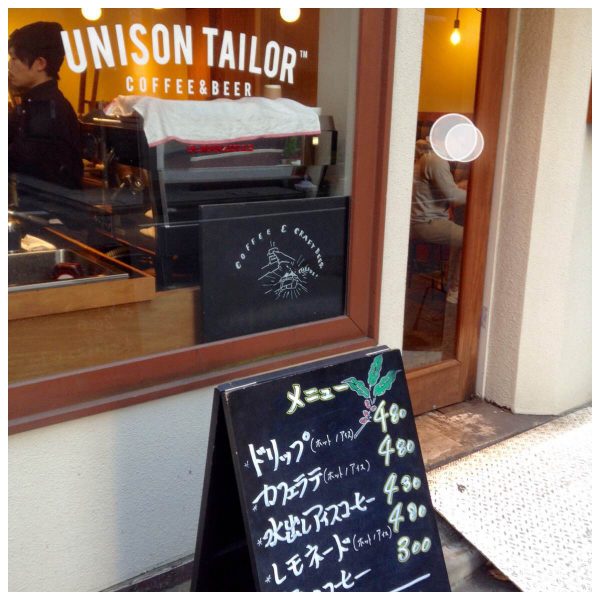 UNISON TAILOR™
COFFEE&BEER
COFFEE & CRAFT BEER
メニュー
*ドリップ(ホット/アイス) 480
*カフェラテ(ホット/アイス) 480
*水出しアイスコーヒー 480
*レモネード(ホット/アイス) 480
コーヒー 300